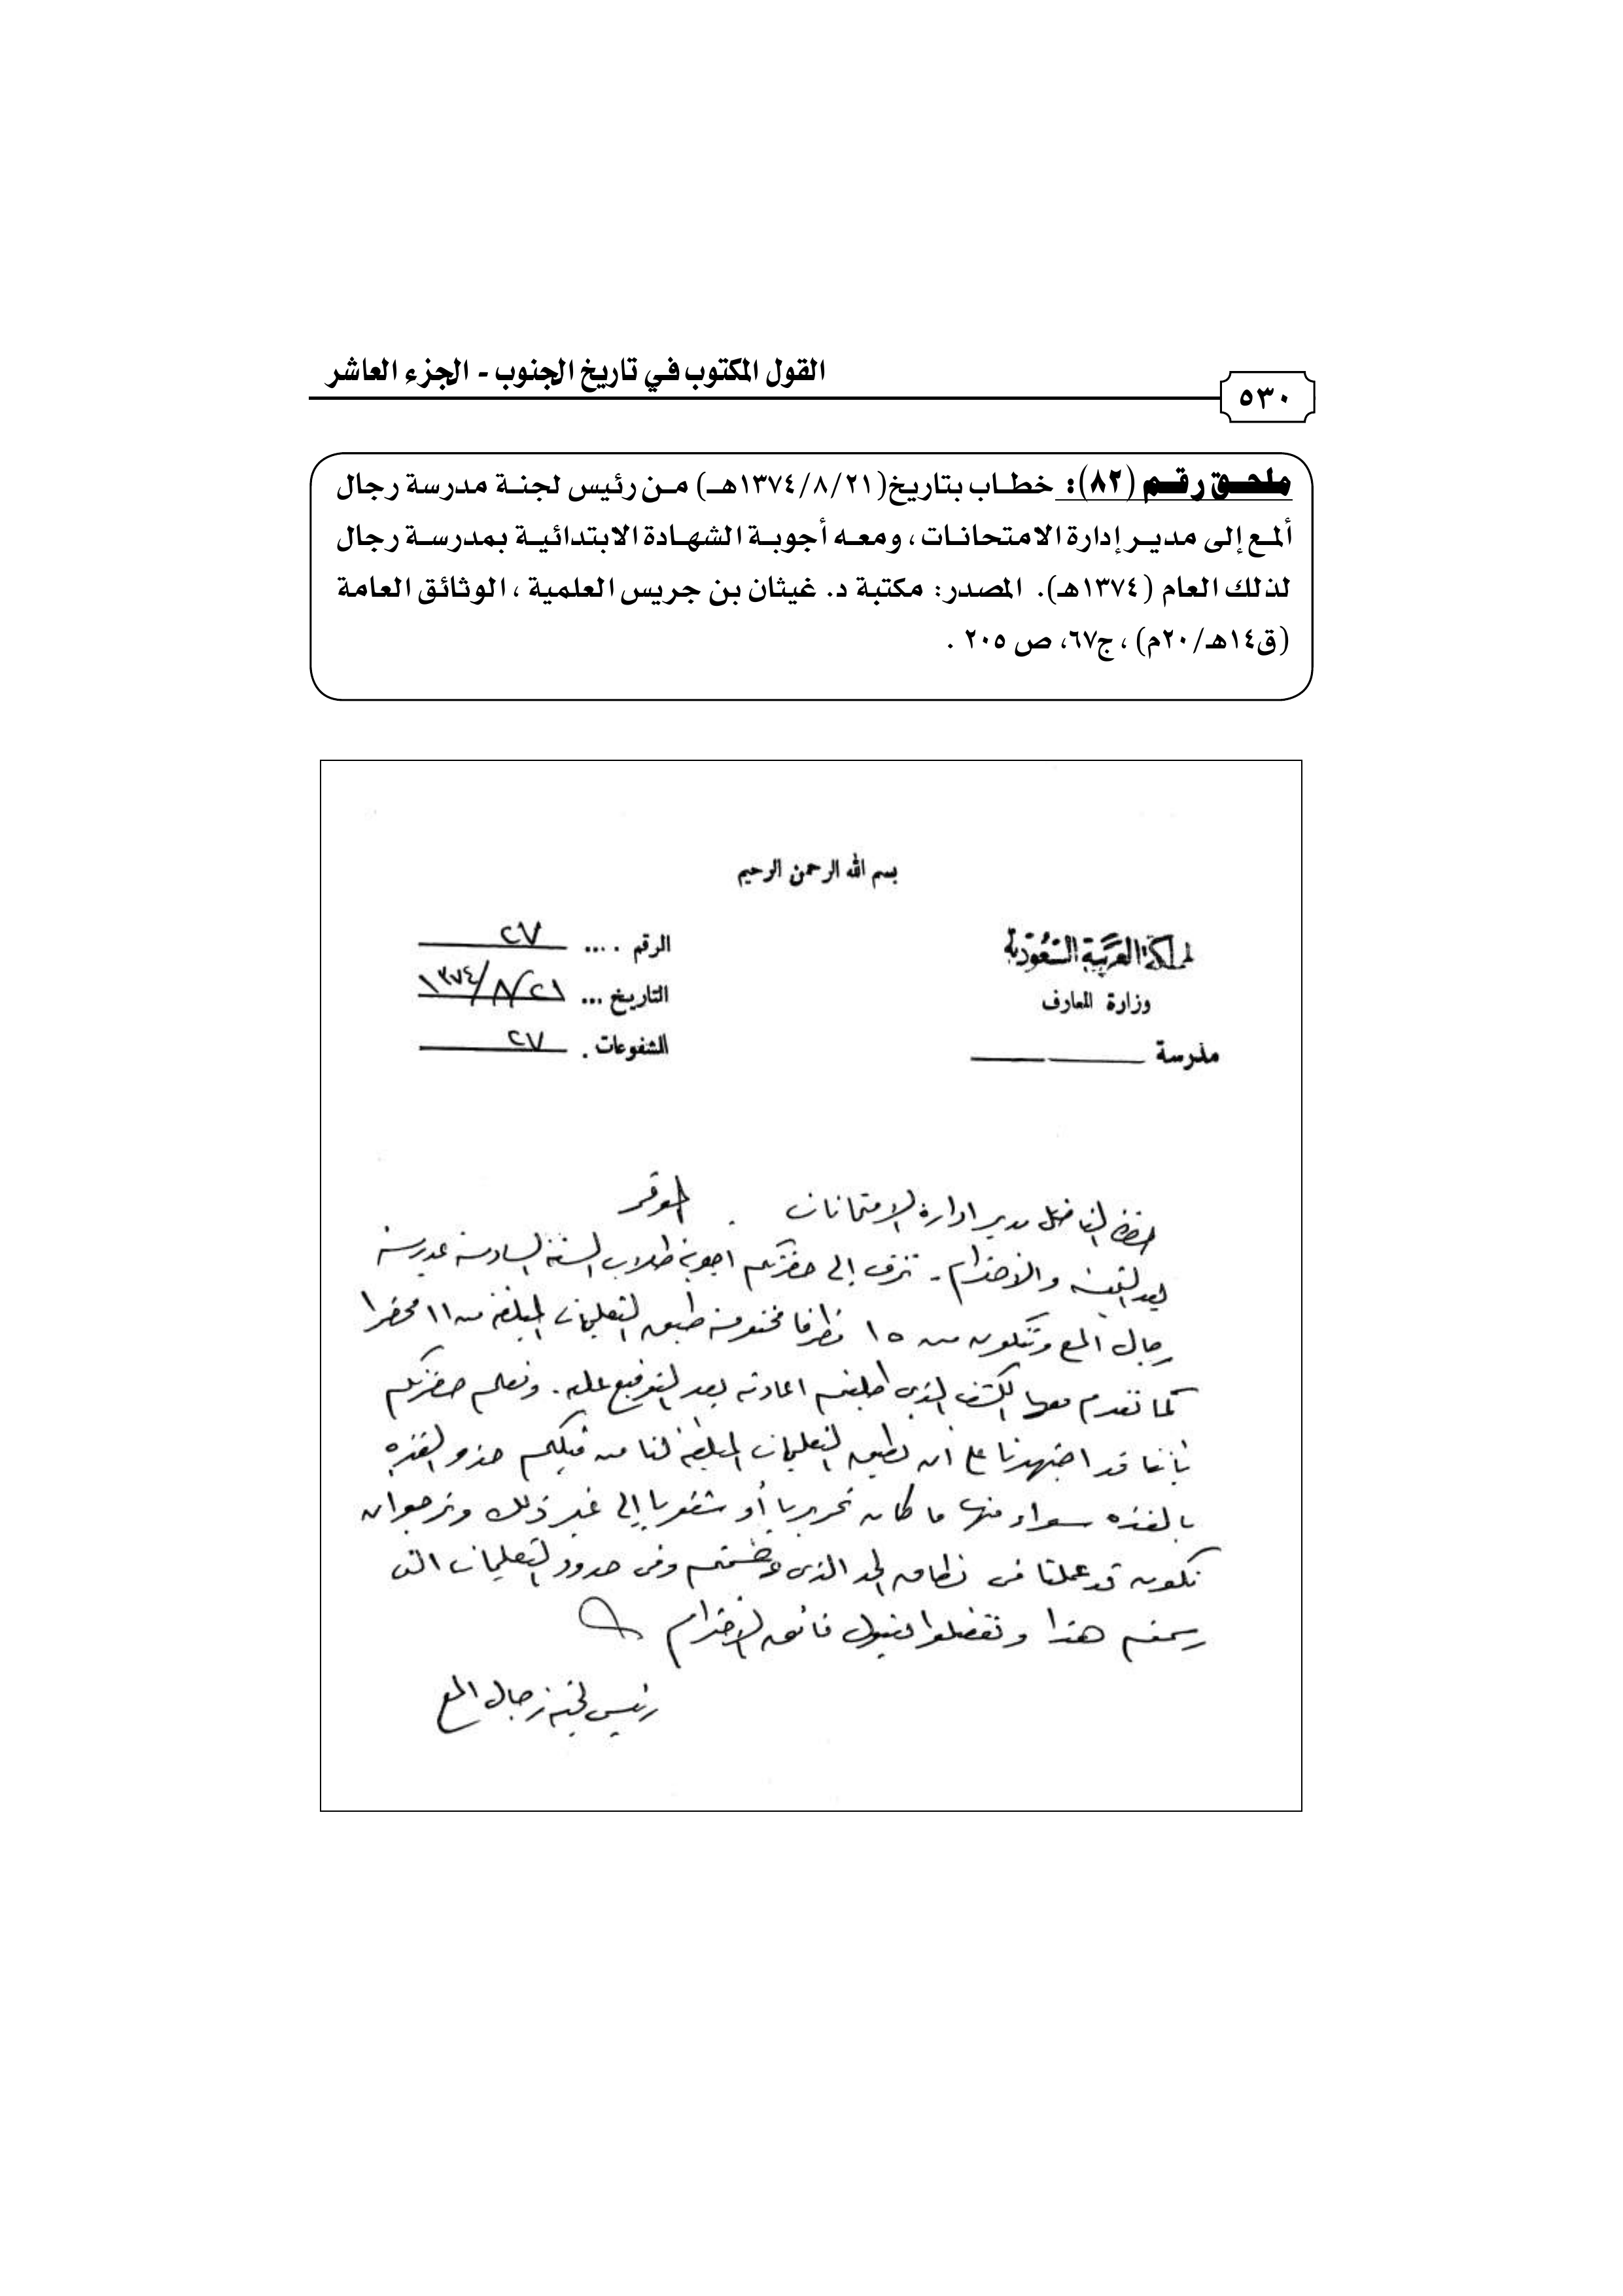 القول المكتوب في تاريخ الجنوب - الجزء العاشر
٥٣٠
ملحق رقم (٨٢): خطاب بتاريخ(١٣٧٤/٨/٢١هـ) من رئيس لجنة مدرسة رجال
ألمع إلى مدير إدارة الامتحانات ، ومعه أجوبة الشهادة الابتدائية بمدرسة رجال
لذلك العام (١٣٧٤هـ). المصدر: مكتبة د. غيثان بن جريس العلمية ، الوثائق العامة
(ق١٤هـ/٢٠م) ، ج٦٧، ص ٢٠٥ .
بسم الله الرحمن الرحيم
المملكة العربية السعودية
وزارة المعارف
مدرسة
الرقم .... ٢٧
التاريخ ... ١٣٧٤/٨/٢١
المشفوعات . ٢٧
حضرة الفاضل مدير ادارة الامتحانات . الموقر
بعد التحية والاحترام - نزف إلى حضرتكم اجوبة طلاب السنة السادسة بمدرسة
رجال المع وتتكون من ١٥ مظرفا مختومة طبق التعليمات المبلغة من ١١ محضرا
كما نقدم معها الكشف الذي طلبتم اعادته بعد التوقيع عليه . ونعلم حضرتكم
بأننا قد اجتهدنا على ان نطبق التعليمات المبلغة لنا من قبلكم حذو القذه
بالقذه سواء منها ما كان تحريريا أو شفويا إلى غير ذلك ونرجو ان
نكون قد عملنا في نطاق الحد الذي وضعتم وفى حدود التعليمات التى
رسمتم هذا وتفضلوا بقبول فائق الاحترام
رئيس لجنة رجال المع